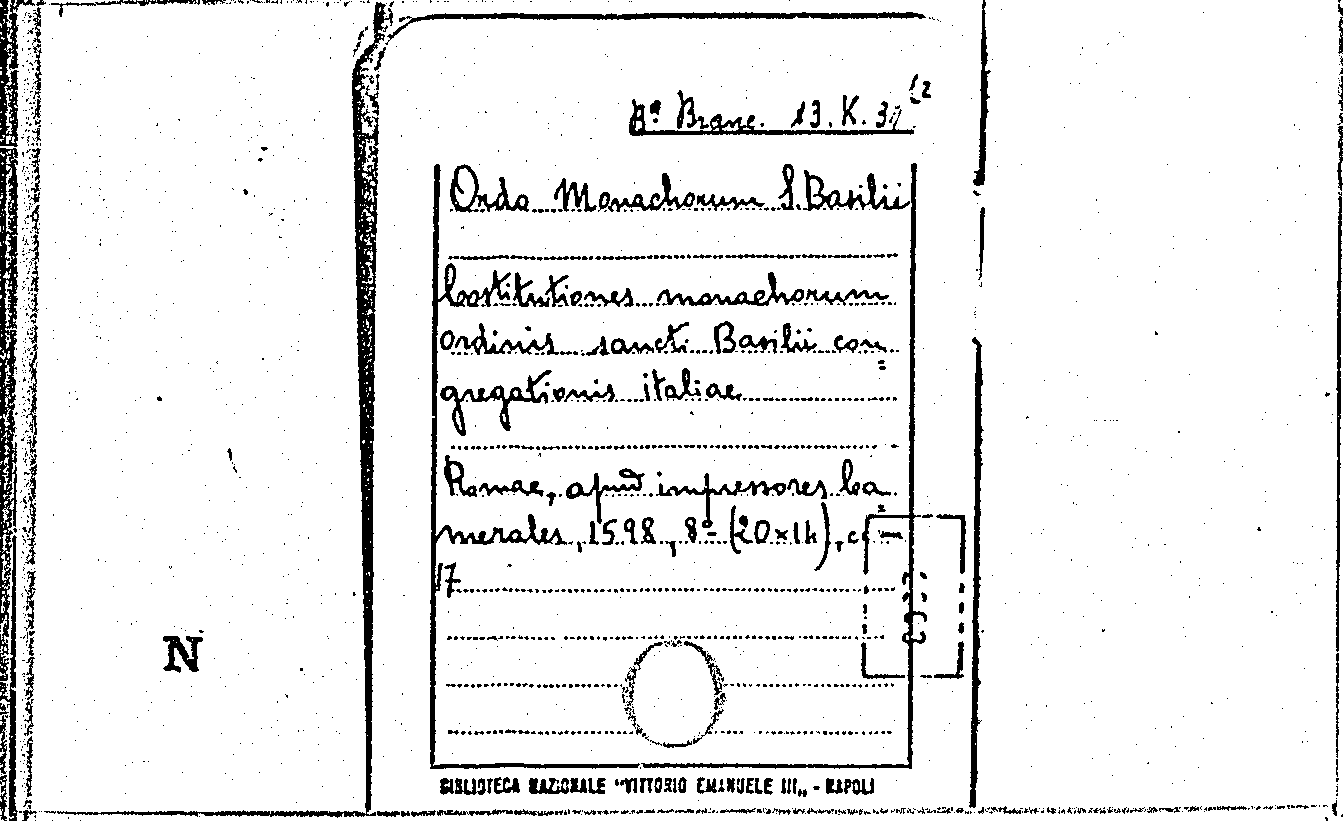 Bª Branc. 13. K. 31 (2
Ordo Monachorum S. Basilii
Costitutiones monachorum
ordinis sancti Basilii con=
gregationis italiae
Romae, apud impressores Ca=
merales, 1598, 8º (20×14), cm
17
N
BIBLIOTECA NAZIONALE "VITTORIO EMANUELE III„ - NAPOLI